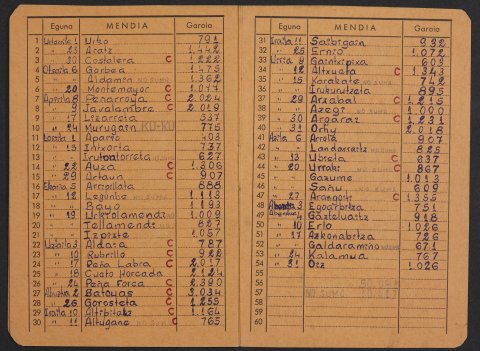 Eguna MENDIA Garaia
1 Urtarrila 1 Urko 791
2 " 23 Aratz 1.442
3 " 30 Costalera C 1.222
4 Otsaila 6 Gorbea 1.475
5 " Aldamin NO SUMA 1.362
6 " 20 Montemayor C 1.077
7 8 Peñarroya C 2.024
8 " 9 Javalambre C 2.019
9 " 17 Lizarreta 337
10 " 24 Murugain KU-KU 775
11 1 Apario 403
12 " 15 Intxorta 737
13 " Irutontorreta 627
14 " 22 Auza C 1.306
15 " 29 Ortaun C 907
16 Ekaina 5 Arripilata 888
17 " 12 Legunbe 1.113
18 " Bayo 1.193
19 " 19 Urkiolamendi 1.009
20 " Tellamendi 827
21 " Izpizte 1.057
22 Uztaila 3 Aldasa C 787
23 " 10 Rubrillo C 922
24 " 17 Peña Labra C 2.017
25 " 18 Cueto Horcada 2.124
26 " 24 Peña Forca C 2.390
27 2 Batoyas C 3.034
28 " 28 Gorosteta C 1.255
29 Iraila 10 C 1.164
30 " 11 Altxugane C 765
Eguna MENDIA Garaia
31 Iraila 11 Saibigain 932
32 " 25 Ernio 1.072
33 Urria 9 Gaintxipixa 603
34 " 12 Altxueta C 1.343
35 " 15 Karakate 742
36 " Irukurutzeta 895
37 " 29 Arzabal C 1.215
38 " Azegi 1.000
39 " 30 Argaraz C 1.231
40 " 31 Orhy 2.018
41 6 Arrola 907
42 " Landarratz 825
43 " 13 Ubieta C 637
44 " 20 Urraki C 867
45 " Gazume 1.013
46 " Sañu 609
47 " 27 Arangoiti C 1.355
48 Abendua 3 Egoaitza 751
49 4 Gazteluaitz 918
50 " 10 Erlo 1.026
51 " 17 Azkonabitza 726
52 " Galdaramiño 671
53 " 24 Kalamua 767
54 " 31 Oiz 1.026
55
56
57
58
59
60